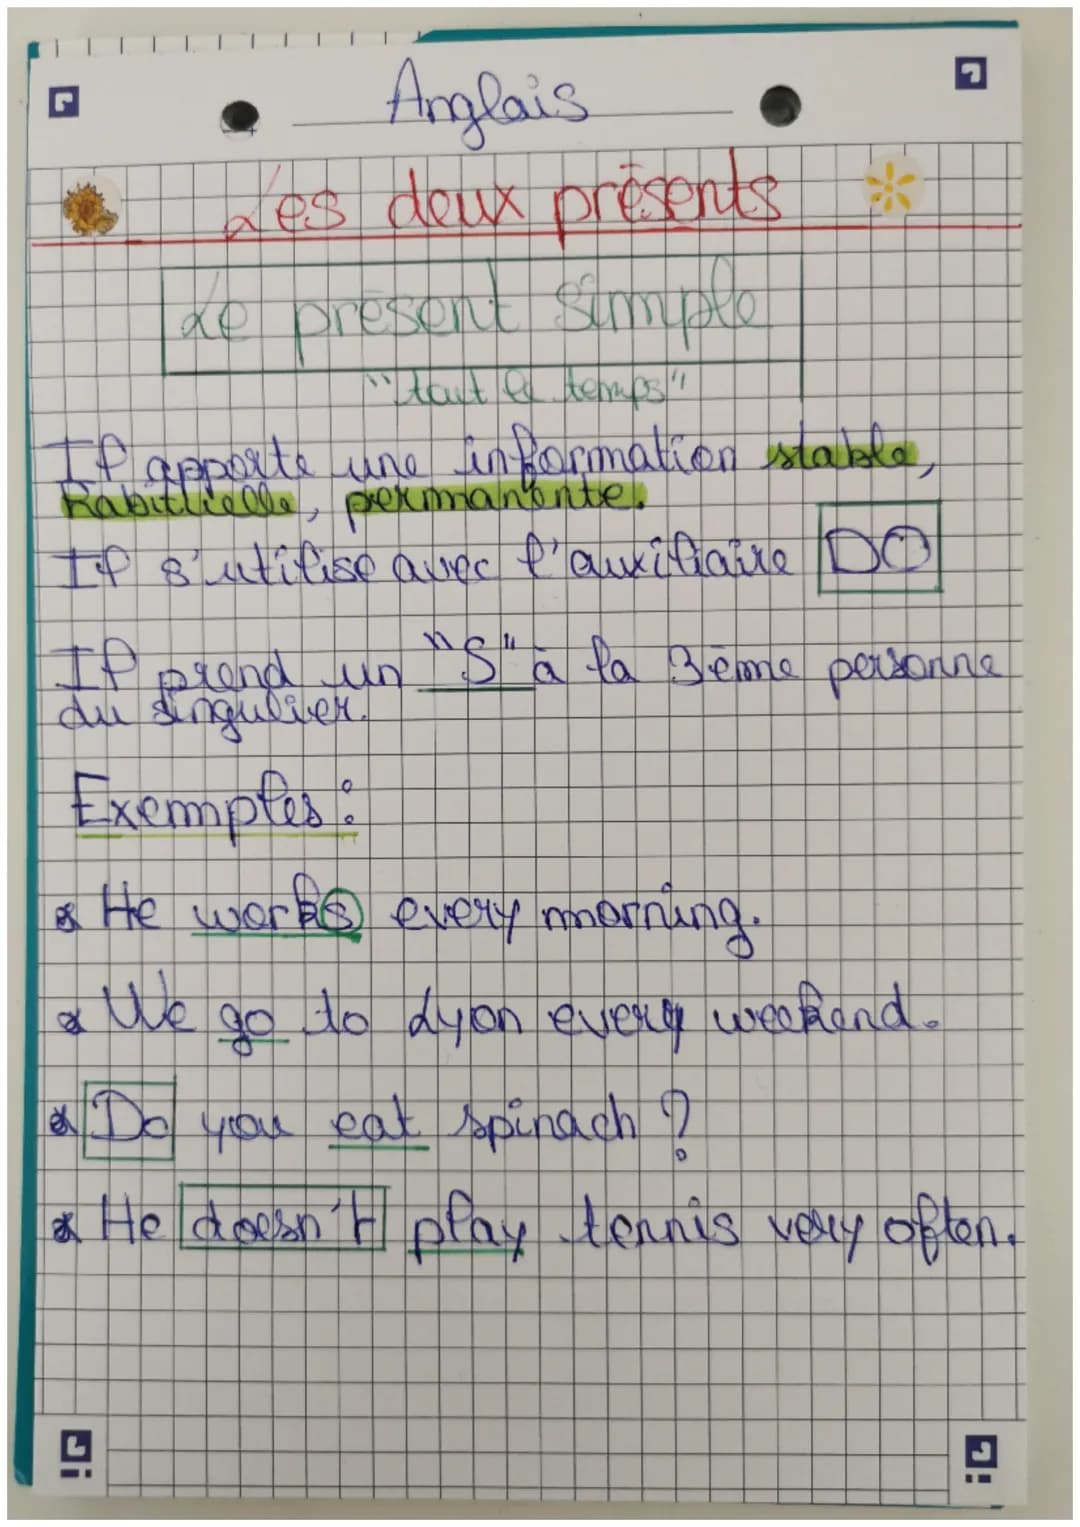 Anglais
Les deux présents
Le présent simple
"tout le temps"
Il apporte une information stable,
habituelle, permanente.
Il s'utilise avec l'auxiliaire DO
Il prend un "S" à la 3ème personne
du singulier.
Exemples :
* He works every morning.
* We go to Lyon every weekend.
* Do you eat spinach ?
* He doesn't play tennis very often.